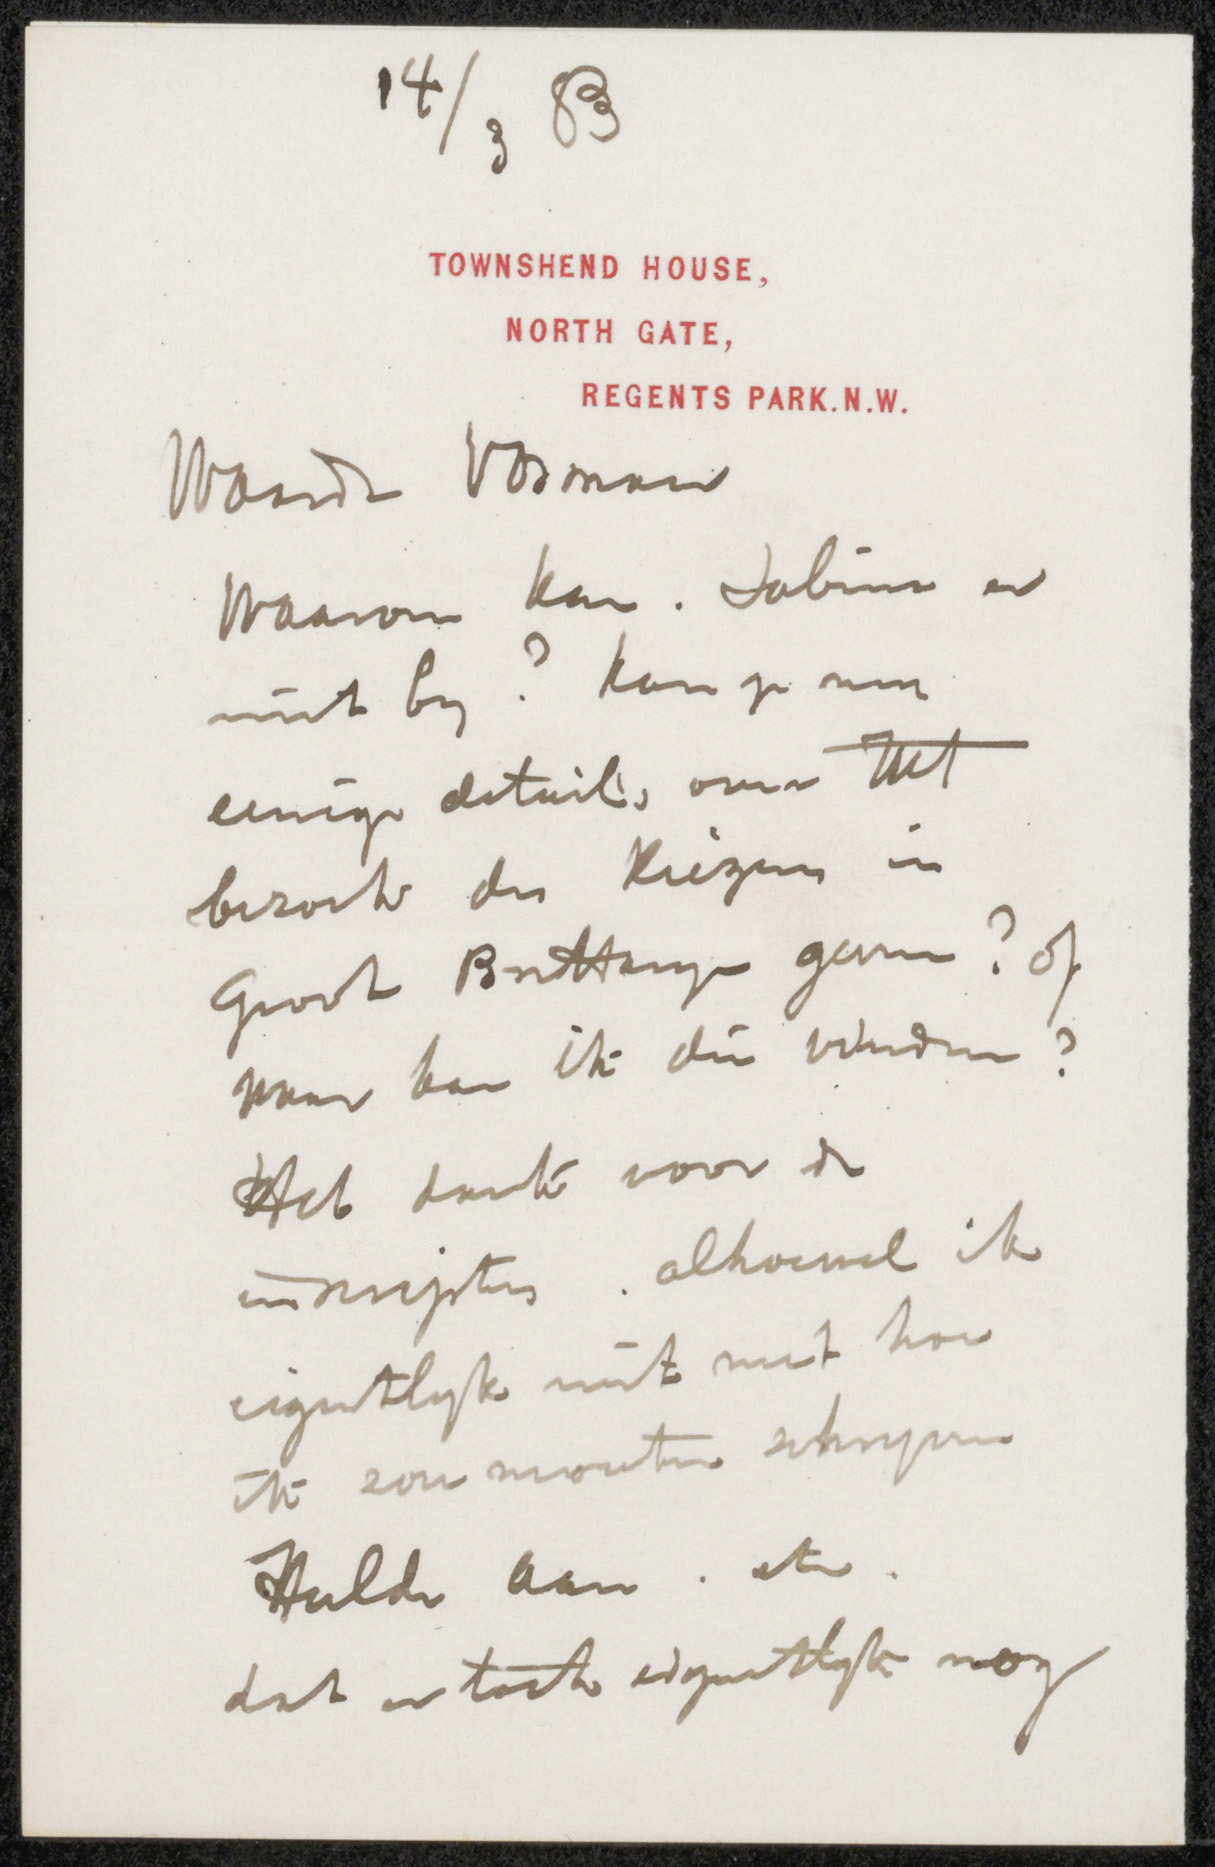 14/3 83
TOWNSHEND HOUSE,
NORTH GATE,
REGENTS PARK.N.W.
Waarde Vosmaer
Waarom kan . Sabina er
niet by ? kan ge me
einige details over Het
bezoek des Kiezers in
Groot Brittanje geven ? of
waar kan ik die vinden ?
Heb dank voor de
inscripties . alhoewel ik
eigentlyk niet weet hoe
ik zou moeten schryven
Hulde aan . etc .
dat er toch eigentlyk nog